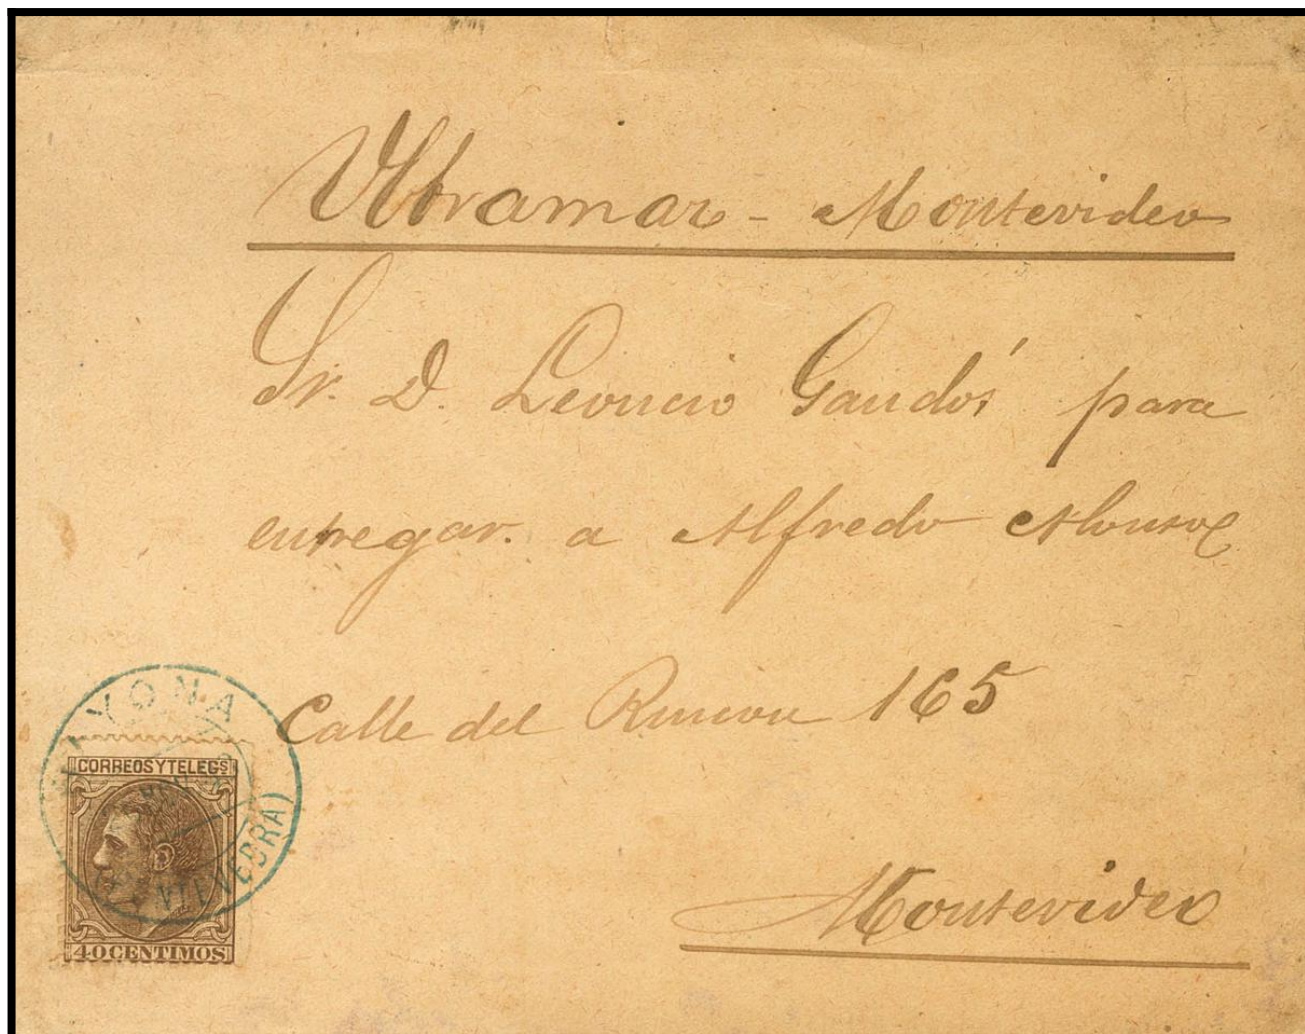 Ultramar - Montevideo
Sr. D. Leoncio Gandós para
entregar. a Alfredo Alonso
Calle del Rincon 165
Montevideo
BAYONA
(PONTEVEDRA)
CORREOS Y TELEGS
40 CENTIMOS